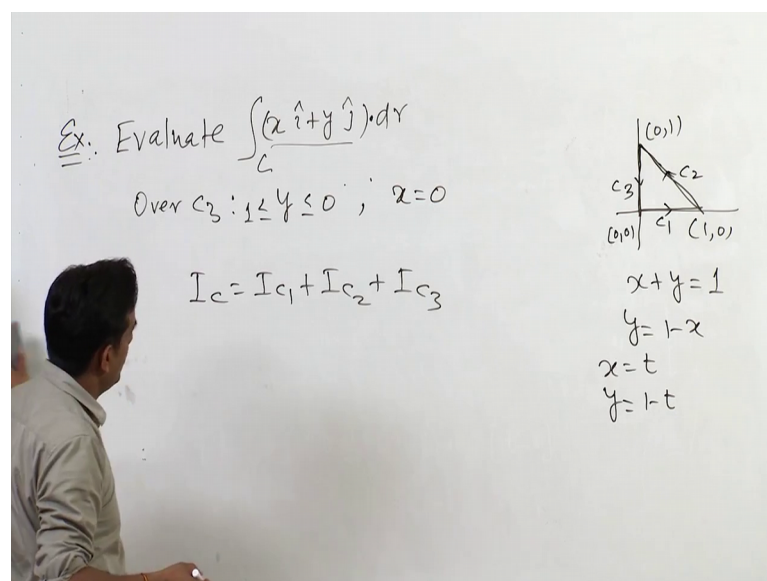 Ex:. Evaluate ∫_C (x î + y ĵ)·dr
Over C₃ : 1 ≤ y ≤ 0 , x = 0
I_C = I_C₁ + I_C₂ + I_C₃
(0,1)
C₂
C₃
(0,0) C₁ (1,0)
x + y = 1
y = 1 - x
x = t
y = 1 - t